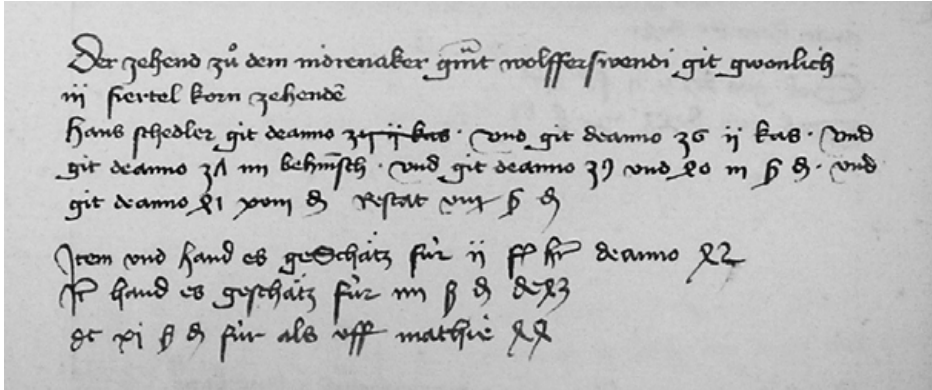 Der zehend zů dem nidrenaker genit wolfferswendi git gwonlich
iij fiertel korn zehendē
Hans schedler git deanno 35 ij kas · vnd git deanno 36 ij käs · vnd
git deanno 37 iiij behmsch · vnd git deanno 39 vnd 40 iij ß ₰ · vnd
git deanno 41 xviij ₰ Restat viiij ß ₰
Item vnd hand es geschätz für ij deanno 42
It hand es geschätz für iiij ß ₰ de 43
dt xi ß ₰ für als vff mathie 44